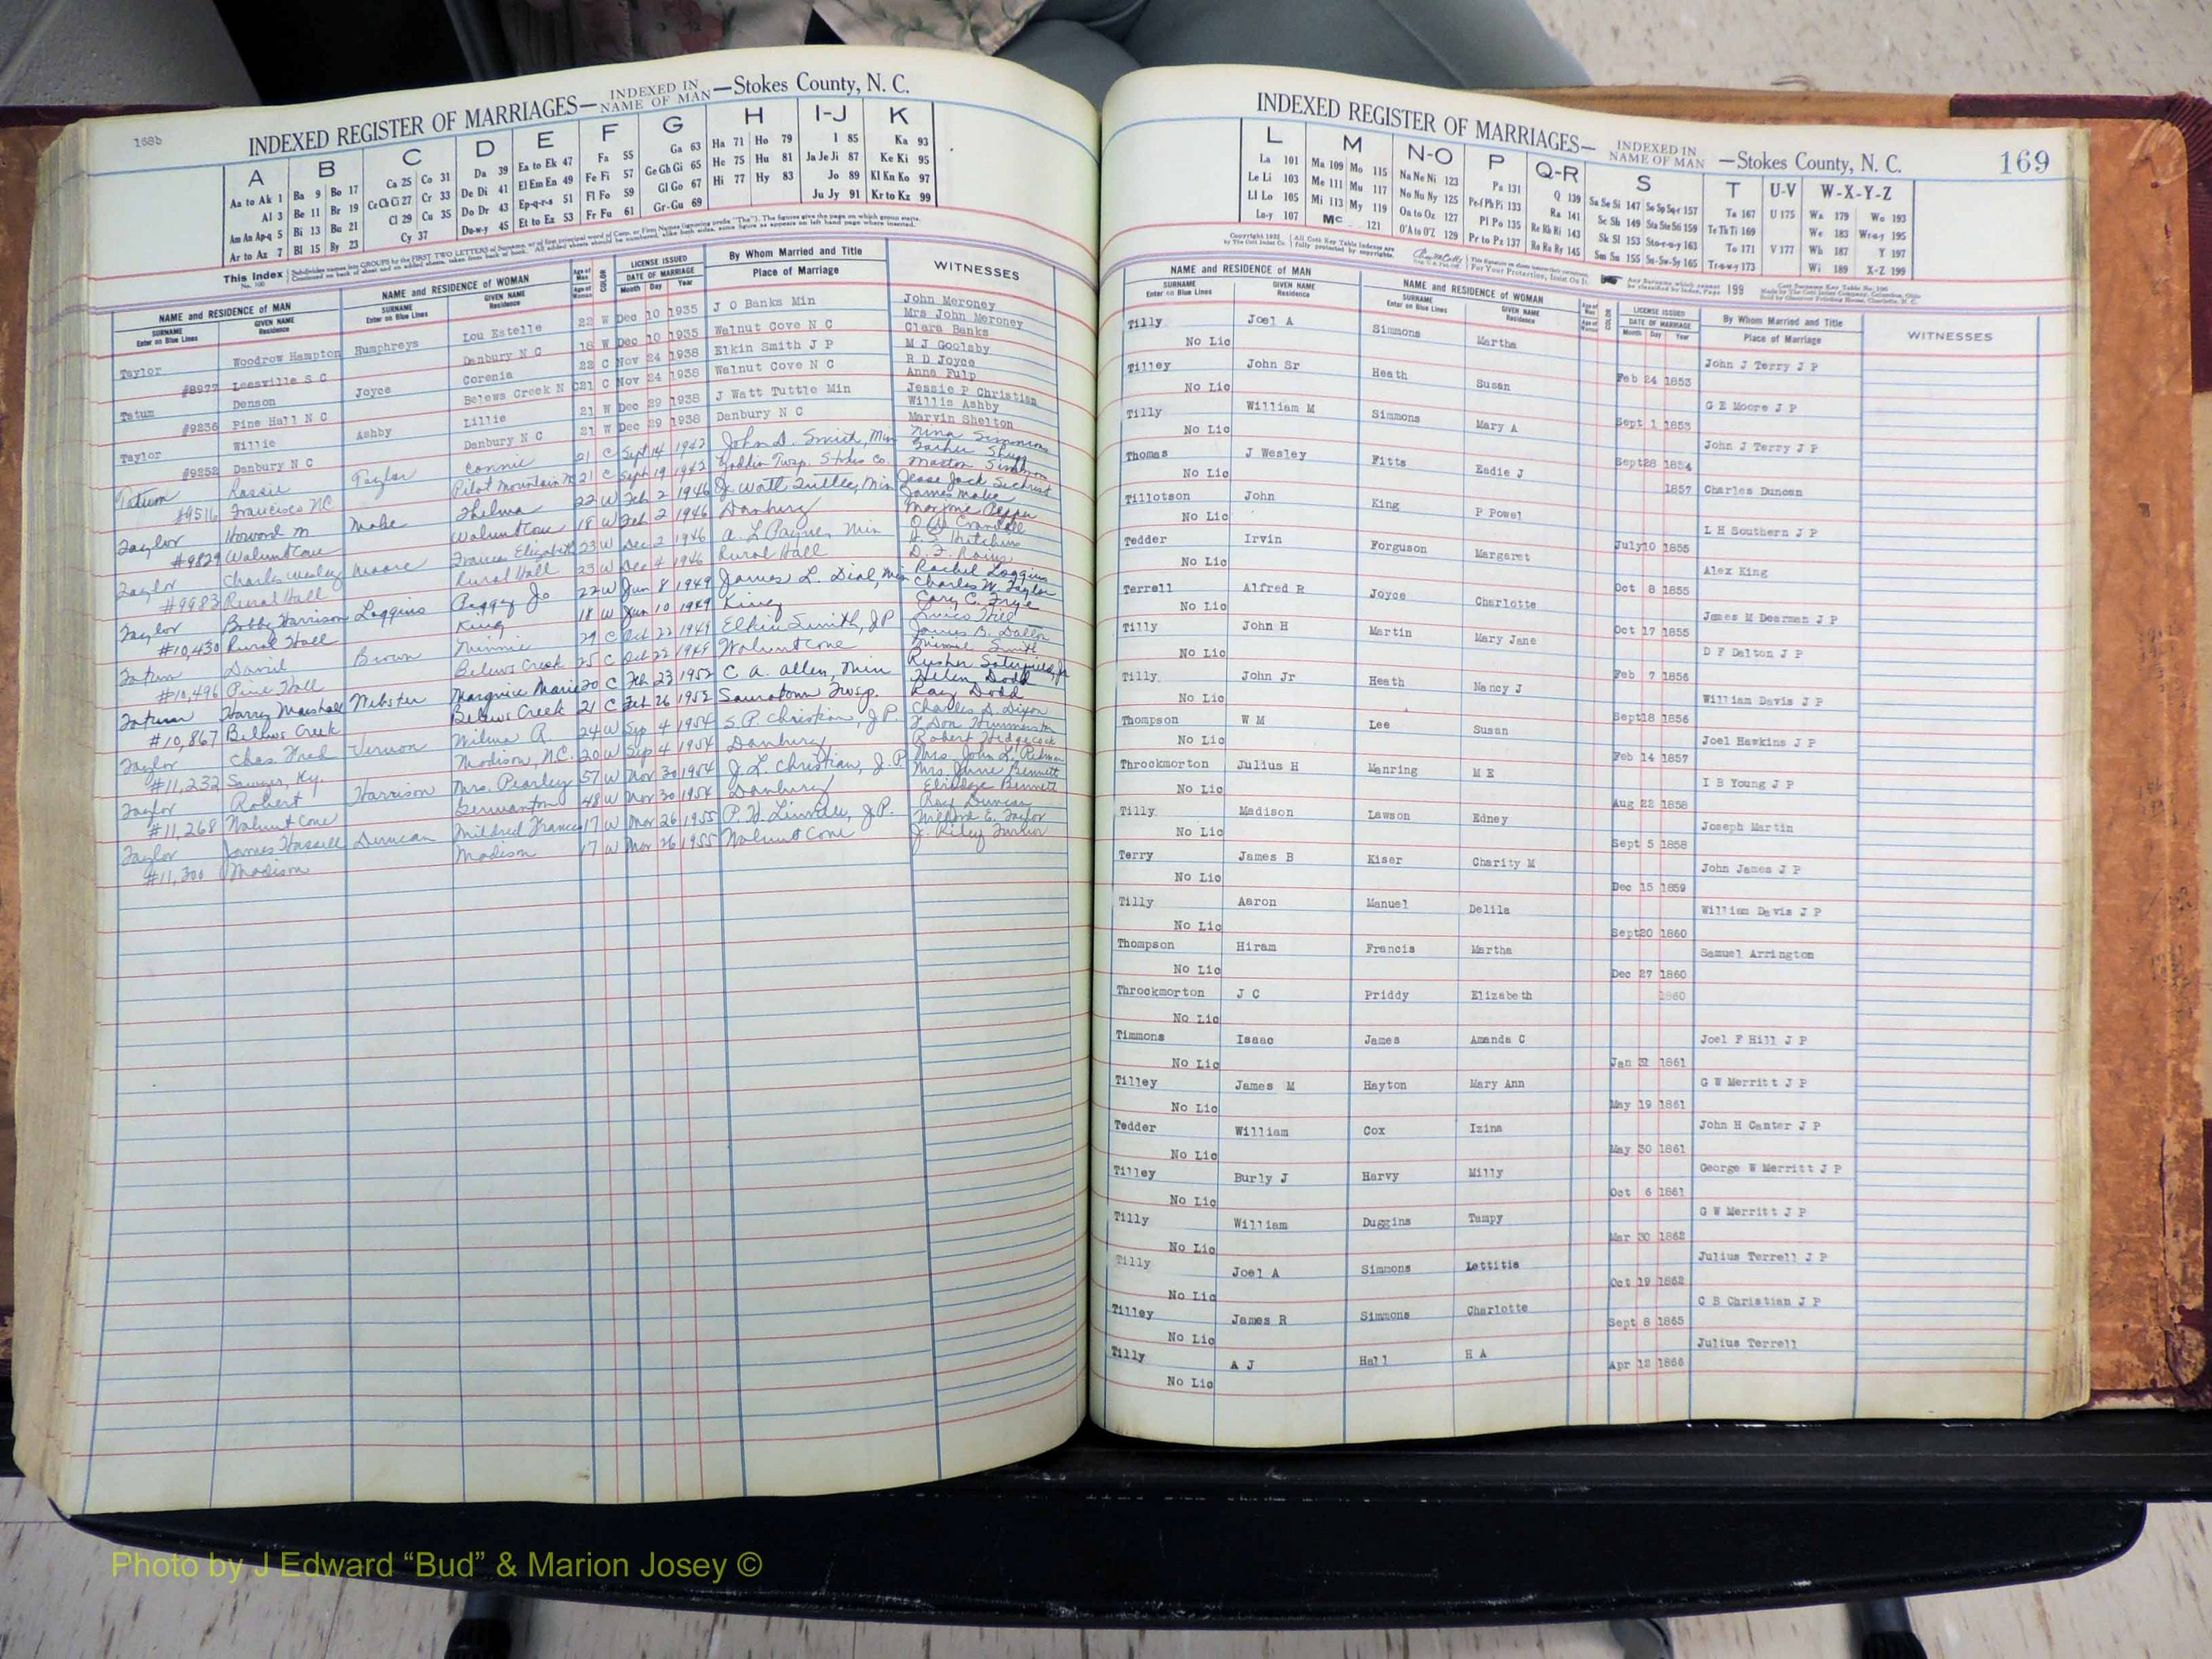 168b
INDEXED REGISTER OF MARRIAGES—INDEXED IN NAME OF MAN—Stokes County, N. C.
A B C D E F G H I-J K
Aa to Ak 1 Ba 9 Bo 17 Ca 25 Co 31 Da 39 Ea to Ek 47 Fa 55 Ga 63 Ha 71 Ho 79 I 85 Ka 93
Al 3 Be 11 Br 19 Ce Ch Ci 27 Cr 33 De Di 41 El Em En 49 Fe Fi 57 Ge Gh Gi 65 He 75 Hu 81 Ja Je Ji 87 Ke Ki 95
Am An Ap-q 5 Bi 13 Bu 21 Cl 29 Cu 35 Do Dr 43 Ep-q-r-s 51 Fl Fo 59 Gl Go 67 Hi 77 Hy 83 Jo 89 Kl Kn Ko 97
Ar to Az 7 Bl 15 By 23 Cy 37 Du-w-y 45 Et to Ez 53 Fr Fu 61 Gr-Gu 69 Ju Jy 91 Kr to Kz 99
This Index No. 100
NAME and RESIDENCE of MAN NAME and RESIDENCE of WOMAN Age of Man Age of Woman COLOR LICENSE ISSUED DATE OF MARRIAGE By Whom Married and Title Place of Marriage WITNESSES
SURNAME Enter on Blue Lines GIVEN NAME Residence SURNAME Enter on Blue Lines GIVEN NAME Residence Month Day Year
Taylor Woodrow Hampton Humphreys Lou Estelle 22 W Dec 10 1935 J O Banks Min John Meroney
Mrs John Meroney
#8977 Leesville S C Danbury N C 18 W Dec 10 1935 Walnut Cove N C Clara Banks
Tatum Denson Joyce Corenia 22 C Nov 24 1938 Elkin Smith J P M J Goolsby
R D Joyce
#9236 Pine Hall N C Belews Creek N C 21 C Nov 24 1938 Walnut Cove N C Anna Fulp
Taylor Willie Ashby Lillie 21 W Dec 29 1938 J Watt Tuttle Min Jessie P Christian
Willis Ashby
#9252 Danbury N C Danbury N C 21 W Dec 29 1938 Danbury N C Marvin Shelton
Tatum Rassie Taylor Connie 21 C Sept 14 1942 John D. Smith, Min Nina Simmons
#9516 Francisco NC Pilot Mountain 21 C Sept 19 1942 Twsp. Stokes Co. Simmons
Taylor Howard M Mabe Thelma 22 W Feb 2 1946 J. Watt Tuttle, Min Jesse Jack Sechrist
James Mabe
#9829 Walnut Cove Walnut Cove 18 W Feb 2 1946 Danbury Marjorie Pepper
Taylor Charles Wesley Moore Frances Elizabeth 23 W Dec 2 1946 A. L. Payne, Min
Hutchins
#9983 Rural Hall Rural Hall 23 W Dec 4 1946 Rural Hall D. F. Rains
Taylor Bobby Harrison Loggins Peggy Jo 22 W Jun 8 1949 James L. Dial, Min Rachel Loggins
Charles W. Taylor
#10,430 Rural Hall King 18 W Jun 10 1949 King Gary C. Frye
Tatum David Brown Minnie 29 C Oct 22 1949 Elkin Smith, JP Hill
James B. Dalton
#10,496 Pine Hall Belews Creek 25 C Oct 22 1949 Walnut Cove Smith
Tatum Harry Marshall Webster Marguie Marie 20 C Feb 23 1952 C. A. Allen, Min Rusher Saterfield, Jr
Helen Dodd
#10,867 Belews Creek Belews Creek 21 C Feb 26 1952 Sauratown Twsp. Ray Dodd
Taylor Chas. Fred Vernon Wilma R. 24 W Sep 4 1954 S. P. Christian, J.P. Charles D. Dixon
Don
#11,232 Sawyer, Ky. Madison, N.C. 20 W Sep 4 1954 Danbury Robert Hedgecock
Taylor Robert Harrison Mrs. Pearley 57 W Nov 30 1954 J. L. Christian, J.P. Mrs. John L.
Mrs. Bennett
#11,268 Walnut Cove Germanton 48 W Nov 30 1954 Danbury Elridge Bennett
Taylor James Hassell Duncan Mildred Frances 17 W Mar 26 1955 P. H. Linville, J.P. Ray Duncan
Wilford E. Taylor
#11,300 Madison Madison 17 W Mar 26 1955 Walnut Cove J. Riley Turner
INDEXED REGISTER OF MARRIAGES— INDEXED IN NAME OF MAN —Stokes County, N. C. 169
L M N-O P Q-R S T U-V W-X-Y-Z
La 101 Ma 109 Mo 115 Na Ne Ni 123 Pa 131 Q 139 Sa Se Si 147 So Sp Sq-r 157 Ta 167 U 175 Wa 179 Wo 193
Le Li 103 Me 111 Mu 117 No Nu Ny 125 Pe-f Ph Pi 133 Ra 141 Sc Sh 149 Sta Ste Sti 159 Te Th Ti 169 We 183 Wr-u-y 195
Ll Lo 105 Mi 113 My 119 Oa to Oz 127 Pl Po 135 Re Rh Ri 143 Sk Sl 153 Sto-r-u-y 163 To 171 V 177 Wh 187 Y 197
Lu-y 107 Mc 121 O'A to O'Z 129 Pr to Pz 137 Ro Ru Ry 145 Sm Sn 155 Su-Sw-Sy 165 Tr-u-w-y 173 Wi 189 X-Z 199
NAME and RESIDENCE of MAN NAME and RESIDENCE of WOMAN Age of Man Age of Woman COLOR LICENSE ISSUED DATE OF MARRIAGE By Whom Married and Title Place of Marriage WITNESSES
SURNAME Enter on Blue Lines GIVEN NAME Residence SURNAME Enter on Blue Lines GIVEN NAME Residence Month Day Year
Tilly Joel A Simmons Martha
No Lic Feb 24 1853 John J Terry J P
Tilley John Sr Heath Susan
No Lic Sept 1 1853 G E Moore J P
Tilly William M Simmons Mary A
No Lic Sept 28 1854 John J Terry J P
Thomas J Wesley Fitts Eadie J
No Lic 1857 Charles Duncan
Tillotson John King P Powel
No Lic July 10 1855 L H Southern J P
Tedder Irvin Forguson Margaret
No Lic Oct 8 1855 Alex King
Terrell Alfred R Joyce Charlotte
No Lic Oct 17 1855 James M Dearman J P
Tilly John H Martin Mary Jane
No Lic Feb 7 1856 D F Dalton J P
Tilly John Jr Heath Nancy J
No Lic Sept 18 1856 William Davis J P
Thompson W M Lee Susan
No Lic Feb 14 1857 Joel Hawkins J P
Throckmorton Julius H Manring M E
No Lic Aug 22 1858 I B Young J P
Tilly Madison Lawson Edney
No Lic Sept 5 1858 Joseph Martin
Terry James B Kiser Charity M
No Lic Dec 15 1859 John James J P
Tilly Aaron Manuel Delila
No Lic Sept 20 1860 William Davis J P
Thompson Hiram Francis Martha
No Lic Dec 27 1860 Samuel Arrington
Throckmorton J C Priddy Elizabeth 1860
No Lic
Timmons Isaac James Amanda C Joel F Hill J P
No Lic Jan 31 1861
Tilley James M Hayton Mary Ann G W Merritt J P
No Lic May 19 1861
Tedder William Cox Izina John H Canter J P
No Lic May 30 1861
Tilley Burly J Harvy Milly George W Merritt J P
No Lic Oct 6 1861
Tilly William Duggins Tampy G W Merritt J P
No Lic Mar 30 1862
Tilly Joel A Simmons Lettitia Julius Terrell J P
No Lic Oct 19 1862
Tilley James R Simmons Charlotte C B Christian J P
No Lic Sept 8 1865
Tilly A J Hall H A Julius Terrell
No Lic Apr 12 1866
Photo by J Edward “Bud” & Marion Josey ©